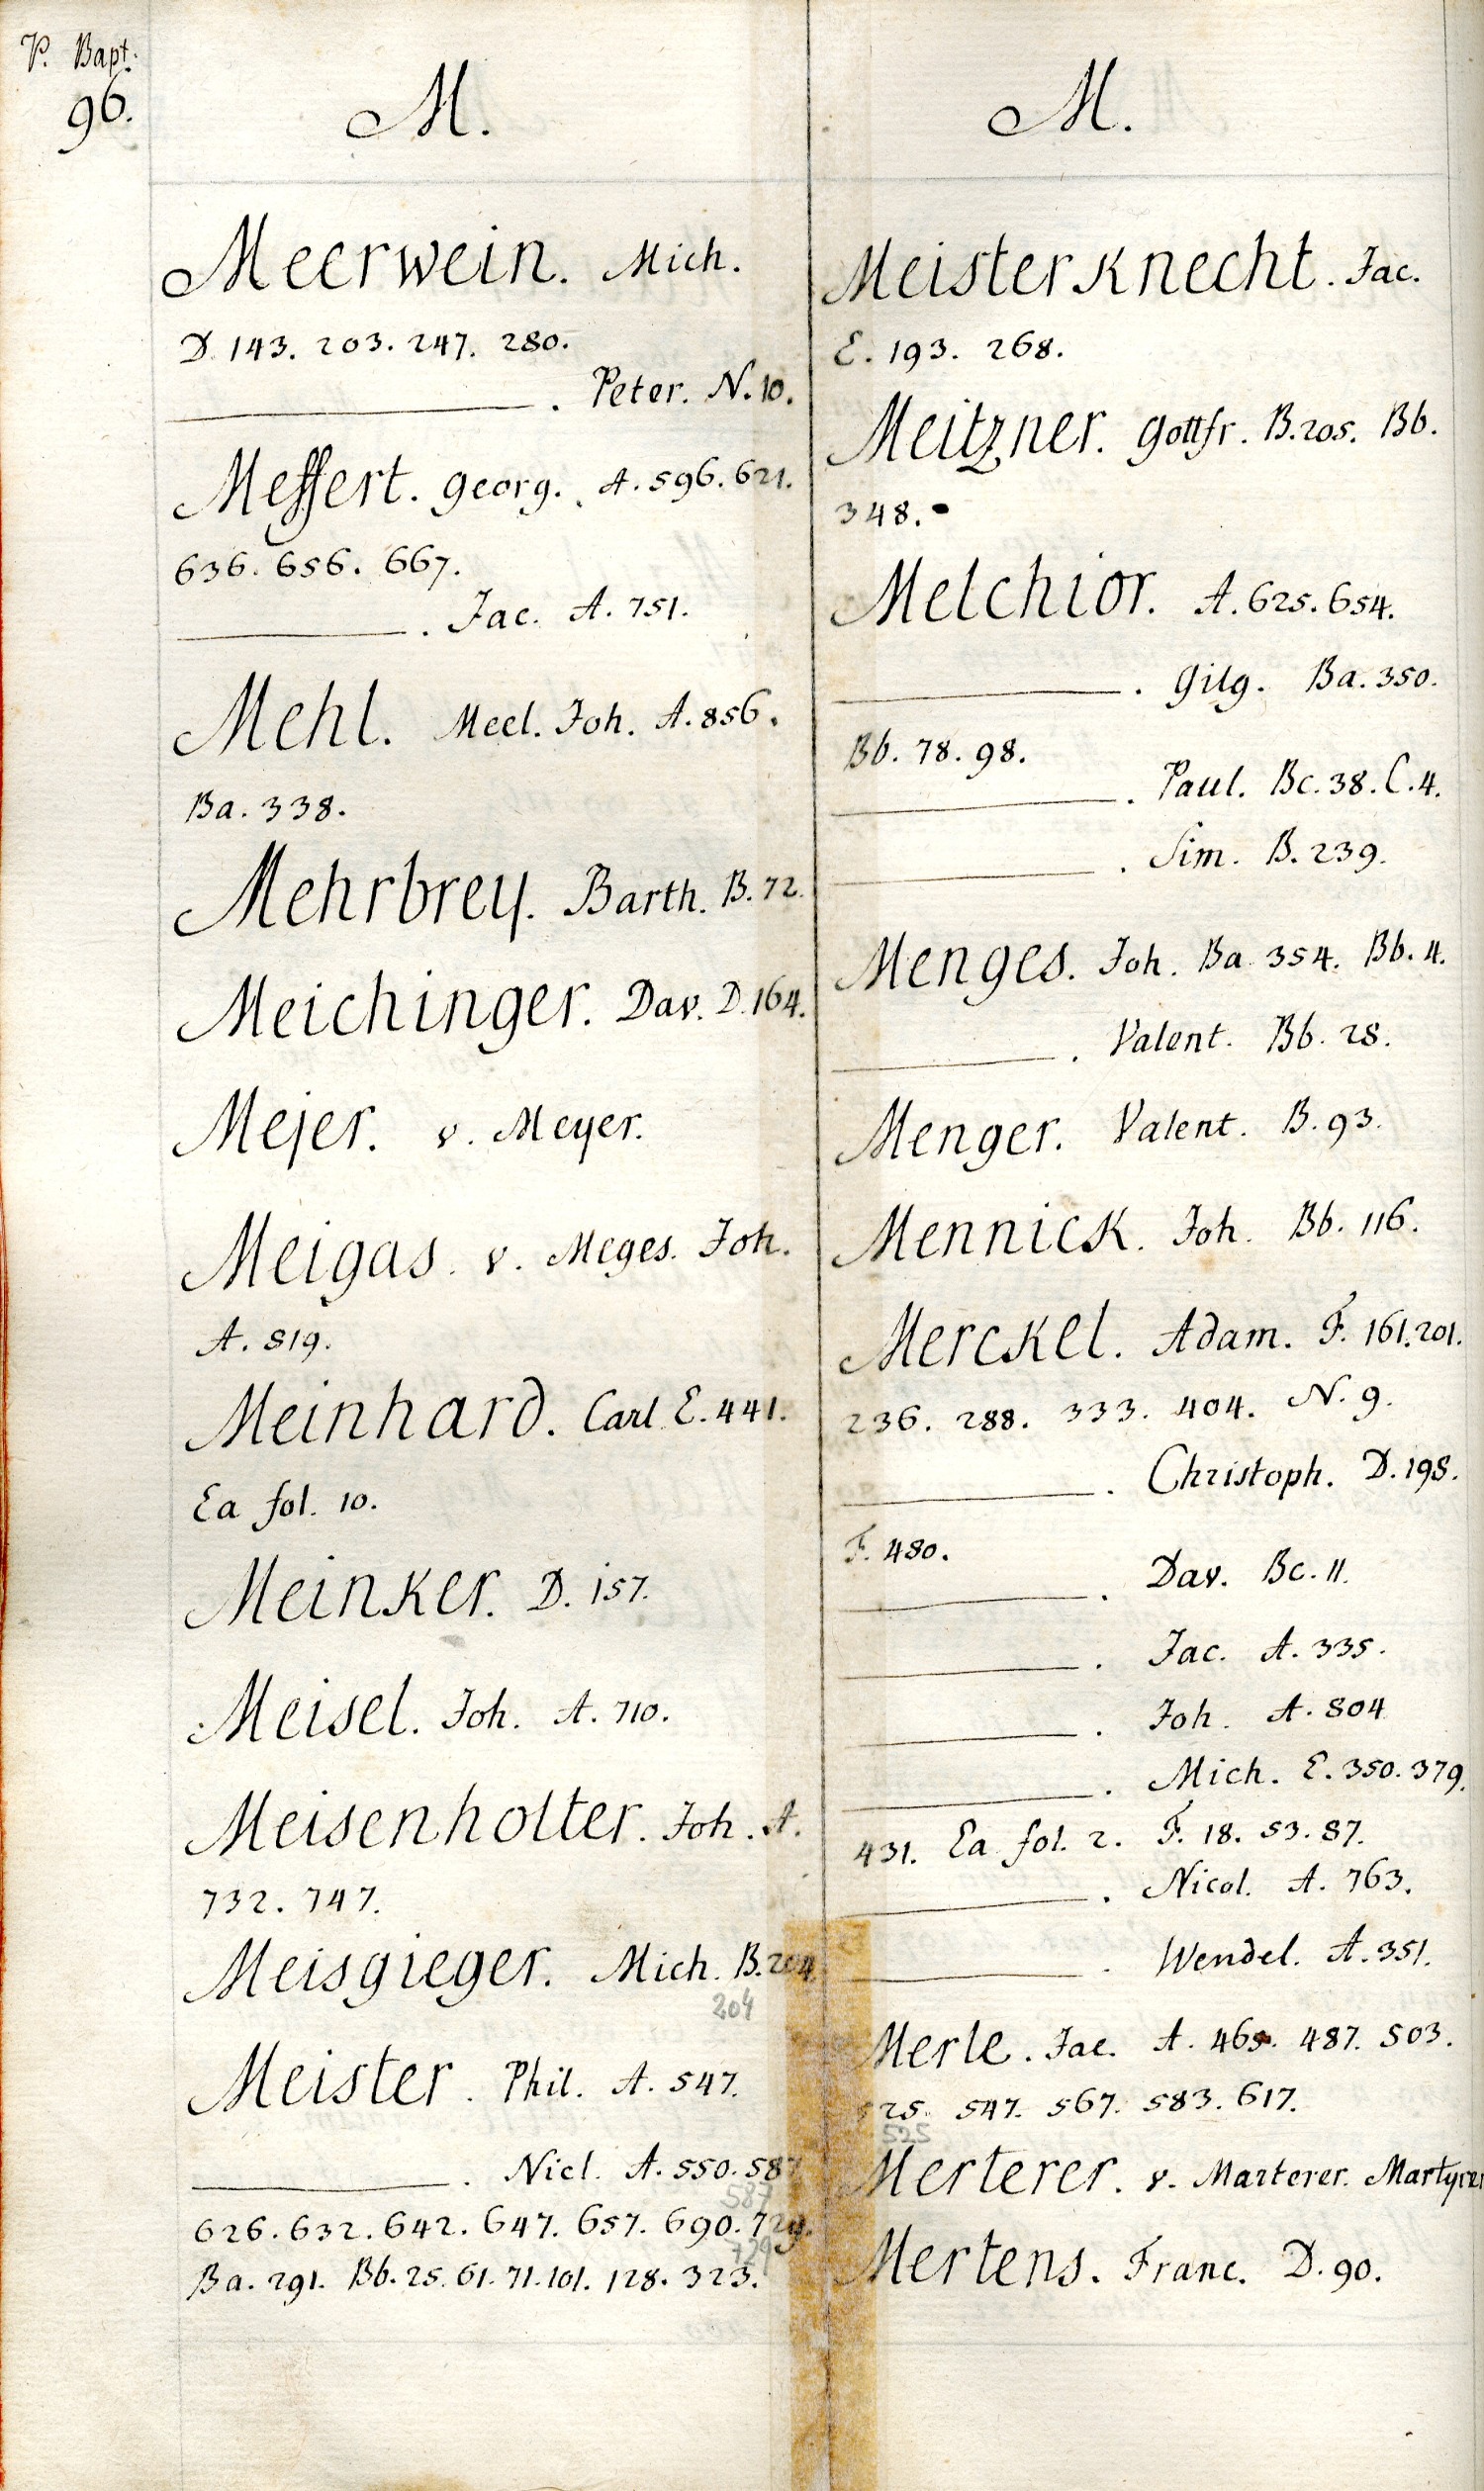 P. Bapt.
96.
M.
Meerwein. Mich.
D. 143. 203. 247. 280.
. Peter. N. 10.
Meffert. Georg. A. 596. 621.
636. 656. 667.
. Jac. A. 751.
Mehl. Meel. Joh. A. 856.
Ba. 338.
Mehrbrey. Barth. B. 72.
Meichinger. Dav. D. 164.
Mejer. v. Meyer.
Meigas. v. Meges. Joh.
A. 819.
Meinhard. Carl E. 441.
Ea fol. 10.
Meinker. D. 157.
Meisel. Joh. A. 710.
Meisenholter. Joh. A.
732. 747.
Meisgieger. Mich. B. 204.
204
Meister. Phil. A. 547.
. Nicl. A. 550. 587
587
626. 632. 642. 647. 657. 690. 729.
729
Ba. 291. Bb. 25. 61. 71. 101. 128. 323.
M.
Meisterknecht. Jac.
E. 193. 268.
Meitzner. Gottfr. B. 205. Bb.
348.
Melchior. A. 625. 654.
. Gilg. Ba. 350.
Bb. 78. 98.
. Paul. Bc. 38. C. 4.
. Sim. B. 239.
Menges. Joh. Ba. 354. Bb. 4.
. Valent. Bb. 28.
Menger. Valent. B. 93.
Mennick. Joh. Bb. 116.
Merckel. Adam. F. 161. 201.
236. 288. 333. 404. N. 9.
. Christoph. D. 198.
F. 480.
. Dav. Bc. 11.
. Jac. A. 335.
. Joh. A. 804
. Mich. E. 350. 379.
431. Ea fol. 2. F. 18. 53. 87.
. Nicol. A. 763.
. Wendel. A. 351.
Merle. Jac. A. 465. 487. 503.
525. 547. 567. 583. 617.
525
Merterer. v. Marterer. Martyrer
Mertens. Franc. D. 90.